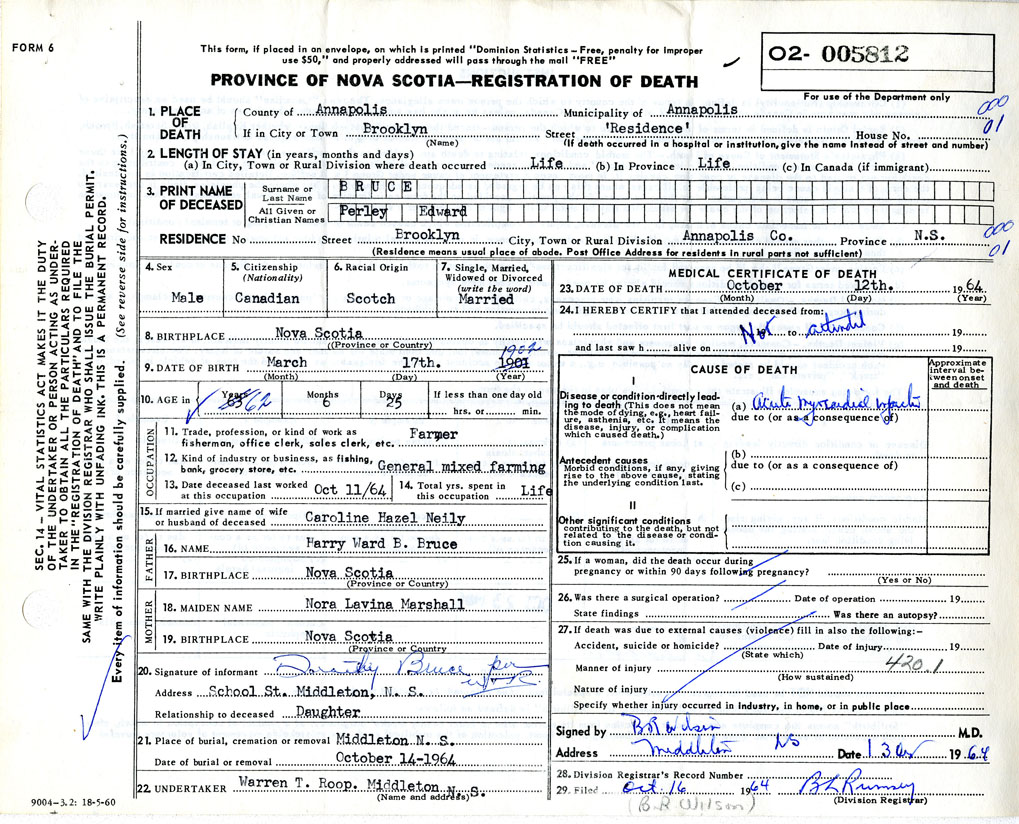 FORM 6
This form, if placed in an envelope, on which is printed "Dominion Statistics – Free, penalty for improper
use $50," and properly addressed will pass through the mail "FREE"
PROVINCE OF NOVA SCOTIA—REGISTRATION OF DEATH
02- 005812
For use of the Department only
000
01
1. PLACE OF DEATH
County of Annapolis Municipality of Annapolis
If in City or Town Brooklyn Street 'Residence' House No.
(Name) (If death occurred in a hospital or institution, give the name instead of street and number)
2. LENGTH OF STAY (in years, months and days)
(a) In City, Town or Rural Division where death occurred Life (b) In Province Life (c) In Canada (if immigrant)
3. PRINT NAME OF DECEASED
Surname or Last Name BRUCE
All Given or Christian Names Perley Edward
000
01
RESIDENCE No Street Brooklyn City, Town or Rural Division Annapolis Co. Province N.S.
(Residence means usual place of abode. Post Office Address for residents in rural parts not sufficient)
4. Sex
Male
5. Citizenship
(Nationality)
Canadian
6. Racial Origin
Scotch
7. Single, Married,
Widowed or Divorced
(write the word)
Married
8. BIRTHPLACE Nova Scotia
((Province or Country)
1902
9. DATE OF BIRTH March 17th. 1901
(Month) (Day) (Year)
10. AGE in Years Months Days If less than one day old
63 62 6 25 hrs. or min.
OCCUPATION
11. Trade, profession, or kind of work as Farmer
fisherman, office clerk, sales clerk, etc.
12. Kind of industry or business, as fishing, General mixed farming
bank, grocery store, etc.
13. Date deceased last worked at this occupation Oct 11/64
14. Total yrs. spent in this occupation Life
15. If married give name of wife
or husband of deceased Caroline Hazel Neily
FATHER
16. NAME Harry Ward B. Bruce
17. BIRTHPLACE Nova Scotia
(Province or Country)
MOTHER
18. MAIDEN NAME Nora Lavina Marshall
19. BIRTHPLACE Nova Scotia
(Province or Country)
20. Signature of informant Dorothy Bruce per
Address School St. Middleton, N. S.
Relationship to deceased Daughter
21. Place of burial, cremation or removal Middleton N. S.
Date of burial or removal October 14-1964
22. UNDERTAKER Warren T. Roop. Middleton N. S.
(Name and address)
9004-3.2: 18-5-60
MEDICAL CERTIFICATE OF DEATH
23. DATE OF DEATH October 12th. 1964
(Month) (Day) (Year)
24. I HEREBY CERTIFY that I attended deceased from:
Not to attended 19
and last saw h alive on 19
CAUSE OF DEATH
Approximate
interval be-
tween onset
and death
I
Disease or condition directly lead-
ing to death (This does not mean
the mode of dying, e.g., heart fail-
ure, asthenia, etc. It means the
disease, injury, or complication
which caused death.)
(a) Acute myocardial infarction
due to (or as a consequence of)
Antecedent causes
Morbid conditions, if any, giving
rise to the above cause, stating
the underlying condition last.
(b)
due to (or as a consequence of)
(c)
II
Other significant conditions
contributing to the death, but not
related to the disease or condi-
tion causing it.
25. If a woman, did the death occur during
pregnancy or within 90 days following pregnancy?
(Yes or No)
26. Was there a surgical operation? Date of operation 19
State findings Was there an autopsy?
27. If death was due to external causes (violence) fill in also the following:–
Accident, suicide or homicide? Date of injury 19
(State which)
420.1
Manner of injury
(How sustained)
Nature of injury
Specify whether injury occurred in industry, in home, or in public place
Signed by B R Wilson M.D.
Address Middleton NS Date 13 Oct 1964
28. Division Registrar's Record Number
29. Filed Oct 16 1964 B L Rumsey
(B.R Wilson) (Division Registrar)
SEC. 14 – VITAL STATISTICS ACT MAKES IT THE DUTY
OF THE UNDERTAKER OR PERSON ACTING AS UNDER-
TAKER TO OBTAIN ALL THE PARTICULARS REQUIRED
IN THE "REGISTRATION OF DEATH" AND TO FILE THE
SAME WITH THE DIVISION REGISTRAR WHO SHALL ISSUE THE BURIAL PERMIT.
WRITE PLAINLY WITH UNFADING INK. THIS IS A PERMANENT RECORD.
Every item of information should be carefully supplied. (See reverse side for instructions.)